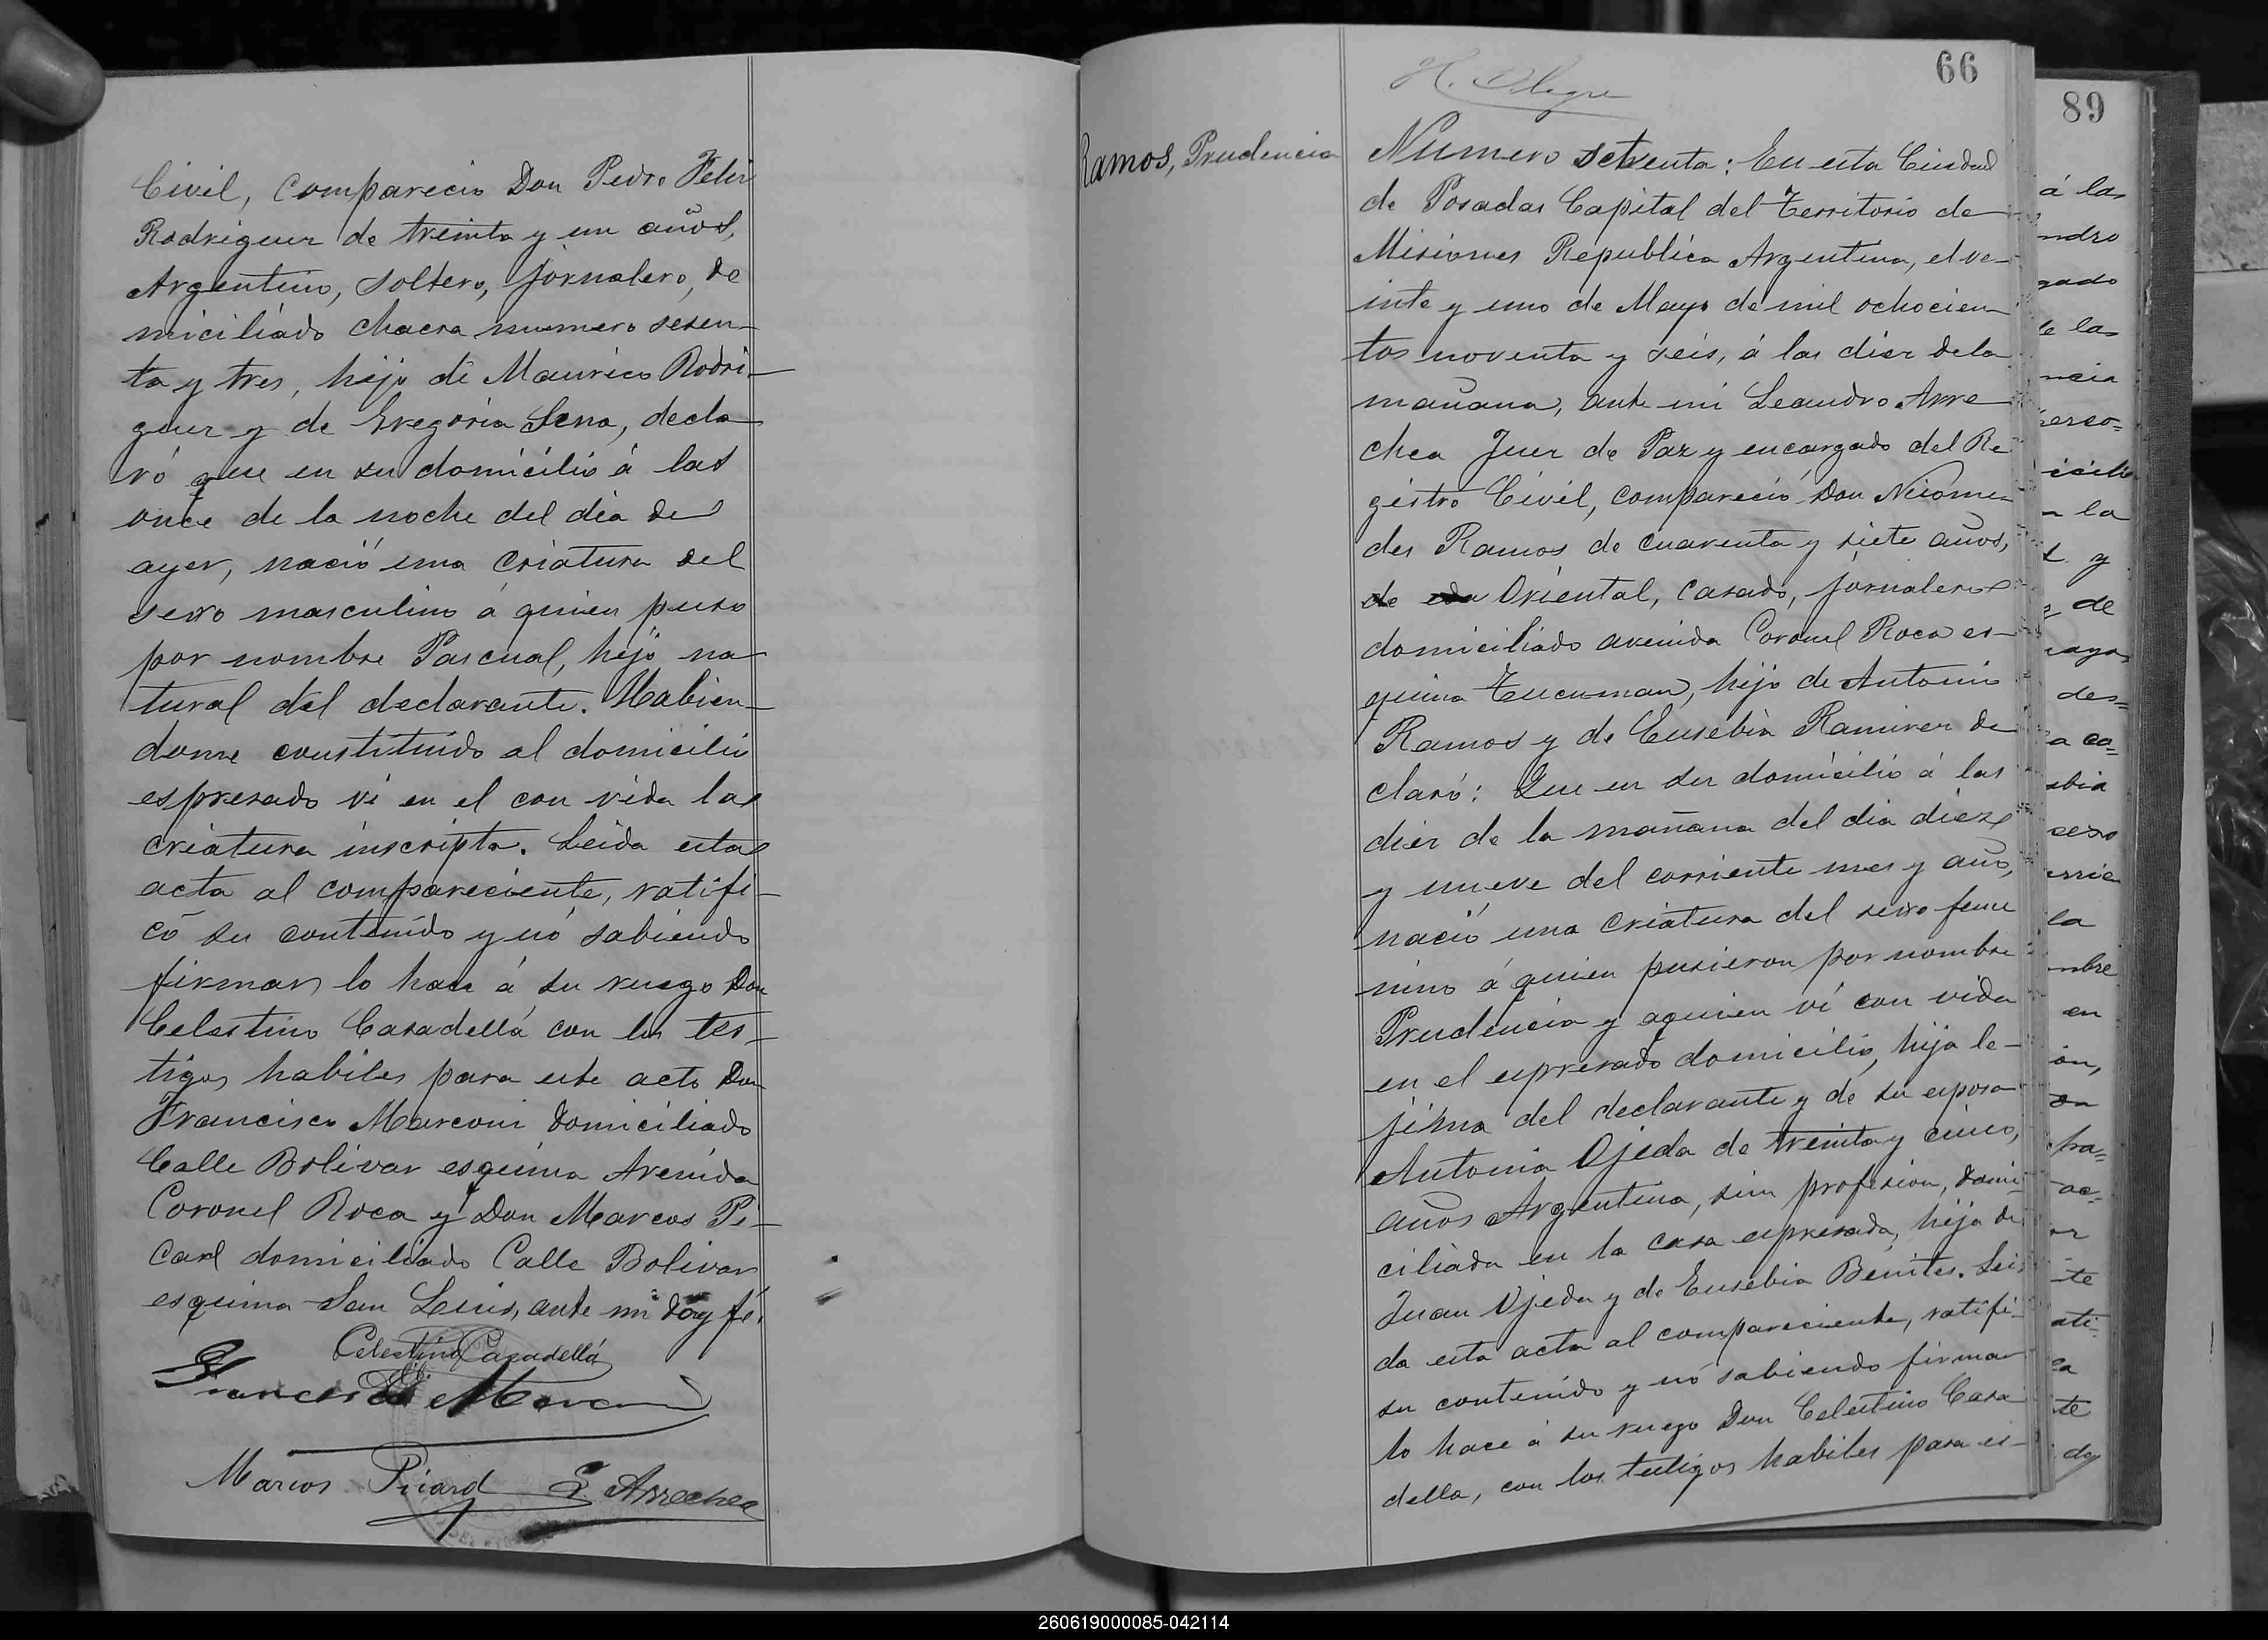 Civil, comparecio Don Pedro Felix
Rodriguez de treinta y un años,
Argentino, soltero, jornalero, do
miciliado chacra numero sesen-
ta y tres, hijo de Maurico Rodri-
guez y de Gregoria Sena, decla-
ró que en su domicilio á las
once de la noche del dia de
ayer, nació una criatura del
sexo masculino á quien puso
por nombre Pascual, hijo na
tural del declarante. Habien-
dome constituido al domicilio
espresado vi en el con vida la
criatura inscripta. Leida esta
acta al compareciente, ratifi-
có su contenido y nó sabiendo
firmar lo hace á su ruego Don
Celestino Casadellá con los tes-
tigos habiles para este acto Don
Francisco Marconi domiciliado
Calle Bolivar esquina Avenida
Coronel Roca y Don Marcos Pi-
card domiciliado Calle Bolivar
esquina San Luis, ante mi doy fé.
Celestino Casadellá
Francisco Marconi
Marcos Picard L. Arrechea
H. Alegre
66
Ramos, Prudencia
Numero setenta: En esta Ciudad
de Posadas Capital del Territorio de
Misiones Republica Argentina, el ve-
inte y uno de Mayo de mil ochocien
tos noventa y seis, á las diez dela
mañana, ante mi Leandro Arre
chea Juez de Paz y encargado del Re
gistro Civil, compareció Don Nicome
des Ramos de cuarenta y siete años,
de eda Oriental, casado, jornalero
domiciliado avenida Coronel Roca es-
quina Tucuman, hijo de Antonio
Ramos y de Eusebia Ramirez de
claró: Que en su domicilio á las
diez de la mañana del dia diez
y nueve del corriente mes y año,
nació una criatura del sexo feme
nino á quien pusieron por nombre
Prudencia y aquien vi con vida
en el espresado domicilio, hija le-
jitima del declarante y de su esposa
Antonia Ojeda de treinta y cinco,
años Argentina, sin profesion, domi-
ciliada en la casa espresada, hija de
Juan Ojeda y de Eusebia Benites. Lei
da esta acta al compareciente, ratifi-
su contenido y nó sabiendo firmar
lo hace á su ruego Don Celestino Casa
della, con los testigos habiles para es-
89
á las
ndro
gado
de las
ncia
icilio
la
y
de
des-
a ca-
sebia
sexo
la
mbre
en
ón,
te
doy
260619000085-042114